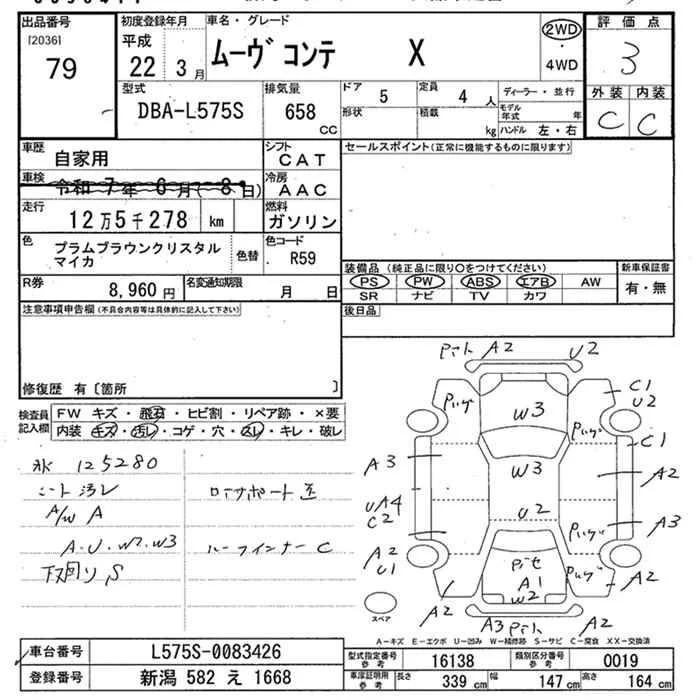 出品番号 初度登録年月 車名・グレード 評価点
[2036]
79
平成
22年 3月
ムーヴ コンテ X
2WD
・
4WD
3
型式 排気量 ドア 5 定員 4人 ディーラー・並行
外装 内装
DBA-L575S 658 CC
形状 積載 kg モデル年式 年
ハンドル 左・右
C C
車歴 自家用 シフト CAT セールスポイント(正常に機能するものに限ります)
車検 令和 7年 6月( 8日) 冷房 AAC
走行 12万5千278 km 燃料 ガソリン
色 プラムブラウンクリスタル
マイカ
色替 色コード R59
装備品(純正品に限り○をつけてください) 新車保証書
PS PW ABS エアB AW 有・無
SR ナビ TV カワ
R券 8,960円 名変通知期限 月 日
後日品
注意事項申告欄(不具合内容等は具体的に記入して下さい)
修復歴 有〔箇所 〕
検査員
記入欄
FW キズ・飛石・ヒビ割・リペア跡・×要
内装 キズ・汚レ・コゲ・穴・スレ・キレ・破レ
水 125280
シート汚レ
A/W A
A.U.W2.W3
下回りS
ルーフインナー C
Pけ A2 U2
W3
C1
U2
C1
A3
W3
A2
UA4
C2
U2
A3
A2
U1
A1
W2
A2
A2
A3
A2
スペア
A-キズ E-エクボ U-凹み W-補修跡 S-サビ C-腐食 XX-交換済
車台番号 L575S-0083426
登録番号 新潟 582 え 1668
型式指定番号
参考
16138 類別区分番号
参考
0019
車庫証明用
参考
長さ 339 cm 幅 147 cm 高さ 164 cm